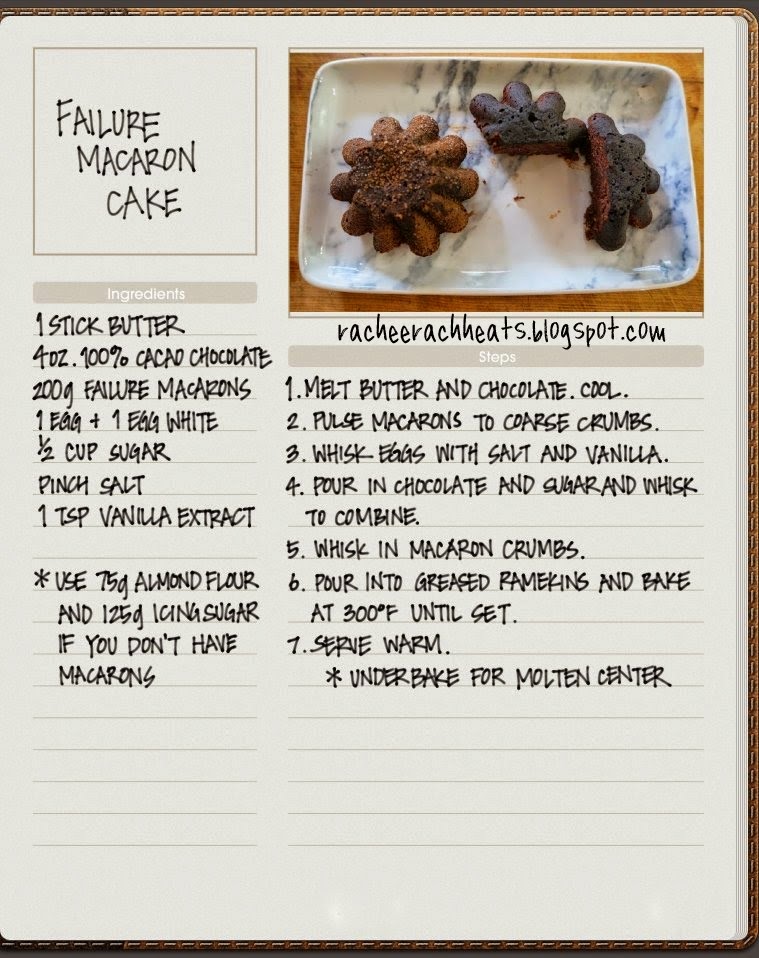 FAILURE
MACARON
CAKE
racheerachheats.blogspot.com
Ingredients
1 STICK BUTTER
4 OZ. 100% CACAO CHOCOLATE
200g FAILURE MACARONS
1 EGG + 1 EGG WHITE
½ CUP SUGAR
PINCH SALT
1 TSP VANILLA EXTRACT
* USE 75g ALMOND FLOUR
AND 125g ICING SUGAR
IF YOU DON'T HAVE
MACARONS
Steps
1. MELT BUTTER AND CHOCOLATE. COOL.
2. PULSE MACARONS TO COARSE CRUMBS.
3. WHISK EGGS WITH SALT AND VANILLA.
4. POUR IN CHOCOLATE AND SUGAR AND WHISK
TO COMBINE.
5. WHISK IN MACARON CRUMBS.
6. POUR INTO GREASED RAMEKINS AND BAKE
AT 300°F UNTIL SET.
7. SERVE WARM.
* UNDERBAKE FOR MOLTEN CENTER